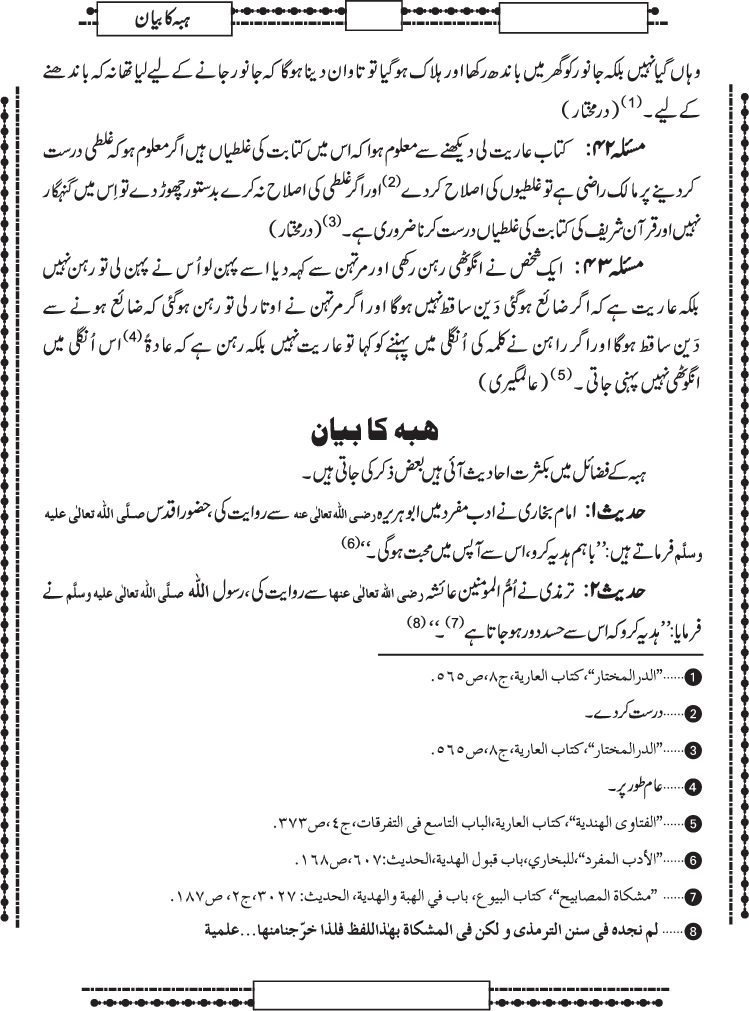 ہبہ کا بیان
وہاں گیا نہیں بلکہ جانور کو گھر میں باندھ رکھا اور ہلاک ہوگیا تو تاوان دینا ہوگا کہ جانور جانے کے لیے لیا تھا نہ کہ باندھنے
کے لیے۔(1) (درمختار)
مسئلہ ۴۲: کتاب عاریت لی دیکھنے سے معلوم ہوا کہ اس میں کتابت کی غلطیاں ہیں اگر معلوم ہو کہ غلطی درست
کردینے پر مالک راضی ہے تو غلطیوں کی اصلاح کردے(2) اور اگر غلطی کی اصلاح نہ کرے بدستور چھوڑ دے تو اِس میں گنہگار
نہیں اور قرآن شریف کی کتابت کی غلطیاں درست کرنا ضروری ہے۔(3) (درمختار)
مسئلہ ۴۳: ایک شخص نے انگوٹھی رہن رکھی اور مرتہن سے کہہ دیا اسے پہن لو اُس نے پہن لی تو رہن نہیں
بلکہ عاریت ہے کہ اگر ضائع ہوگئی دَین ساقط نہیں ہوگا اور اگر مرتہن نے اوتار لی تو رہن ہوگئی کہ ضائع ہونے سے
دَین ساقط ہوگا اور اگر راہن نے کلمہ کی اُنگلی میں پہننے کو کہا تو عاریت نہیں بلکہ رہن ہے کہ عادۃً(4) اس اُنگلی میں
انگوٹھی نہیں پہنی جاتی۔(5) (عالمگیری)
ھبہ کا بیان
ہبہ کے فضائل میں بکثرت احادیث آئی ہیں بعض ذکر کی جاتی ہیں۔
حدیث ۱: امام بخاری نے ادب مفرد میں ابوہریرہ رضی اللہ تعالیٰ عنہ سے روایت کی، حضور اقدس صلَّی اللہ تعالیٰ علیہ
وسلَّم فرماتے ہیں: ’’باہم ہدیہ کرو، اس سے آپس میں محبت ہوگی۔‘‘(6)
حدیث ۲: ترمذی نے اُمُّ المومنین عائشہ رضی اللہ تعالیٰ عنہا سے روایت کی، رسول اللہ صلَّی اللہ تعالیٰ علیہ وسلَّم نے
فرمایا: ’’ہدیہ کرو کہ اس سے حسد دور ہوجاتا ہے(7)۔‘‘(8)
1......’’الدرالمختار‘‘، کتاب العاریۃ، ج٨، ص٥٦٥.
2......درست کردے۔
3......’’الدرالمختار‘‘، کتاب العاریۃ، ج٨، ص٥٦٥.
4......عام طور پر۔
5......’’الفتاوی الھندیۃ‘‘، کتاب العاریۃ، الباب التاسع فی التفرقات، ج٤، ص٣٧٣.
6......’’الأدب المفرد‘‘، للبخاري، باب قبول الھدیۃ، الحدیث: ٦٠٧، ص١٦٨.
7...... ’’مشکاۃ المصابیح‘‘، کتاب البیوع، باب في الھبۃ والھدیۃ، الحدیث: ٣٠٢٧، ج٢، ص١٨٧.
8...... لم نجدہ فی سنن الترمذی و لکن فی المشکاۃ بھذا اللفظ فلذا خرّجنا منھا...علمیۃ